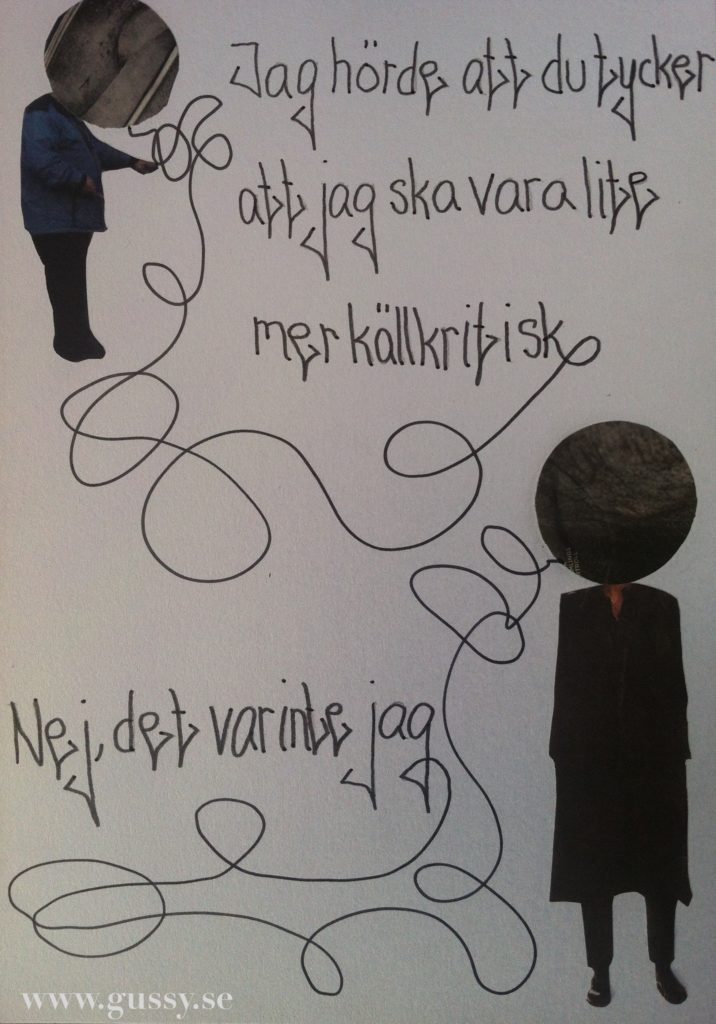 Jag hörde att du tycker
att jag ska vara lite
mer källkritisk
Nej, det var inte jag
www.gussy.se